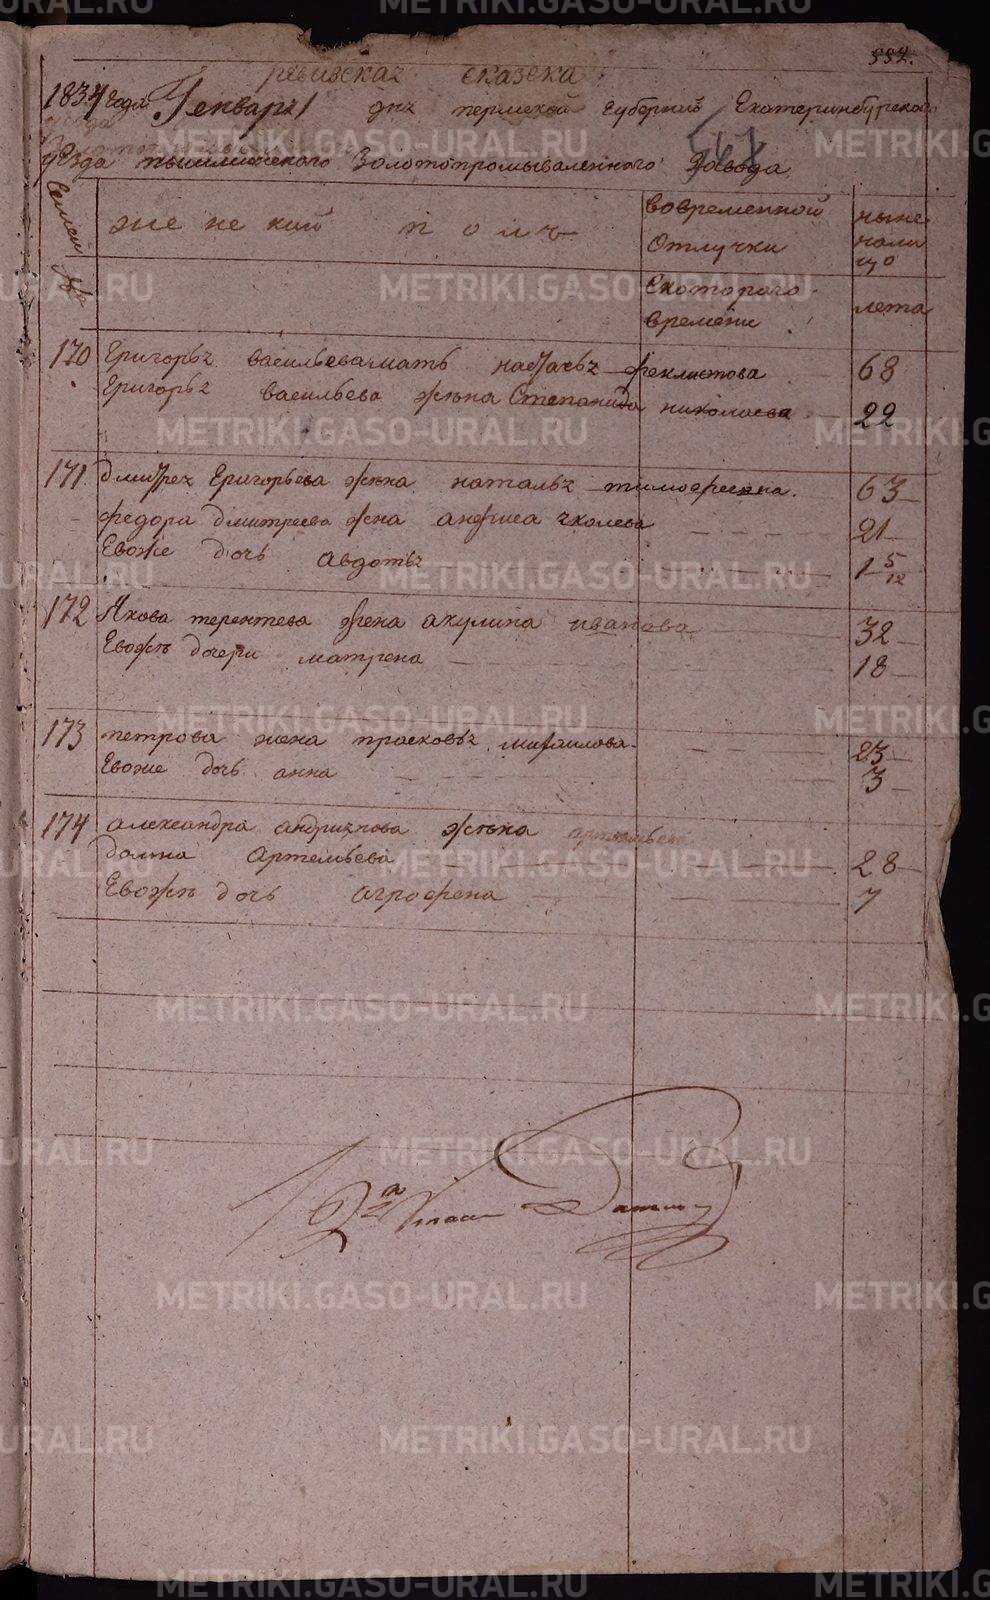 557.
ревизская сказска
1834 года Генваря дня пермской губернии Екатеринбурского
567
уезда пышминского Золотопромываленного Завода
Семей №
женекий полъ
вовременной Отлучки
ныне нали цо
Скоторого времени
лета
170 Григорья васильева мать настасья феклистова 68
Григорья васильева жена Степанида николаева 22
171 дмитрея Григорьева жена наталья тимофеевна. 63
федора дмитреева жена анфиса 21
Евоже дочь авдотья 1 5/12
172 Якова терентева жена акулина иванова 32
Евожъ дочери матрена 18
173 петрова жена прасковья михаилова 23
Евоже дочь анна 3
174 александра андриянова жена
домна артемьева 28
Евожъ дочь агрофена 7
METRIKI.GASO-URAL.RU